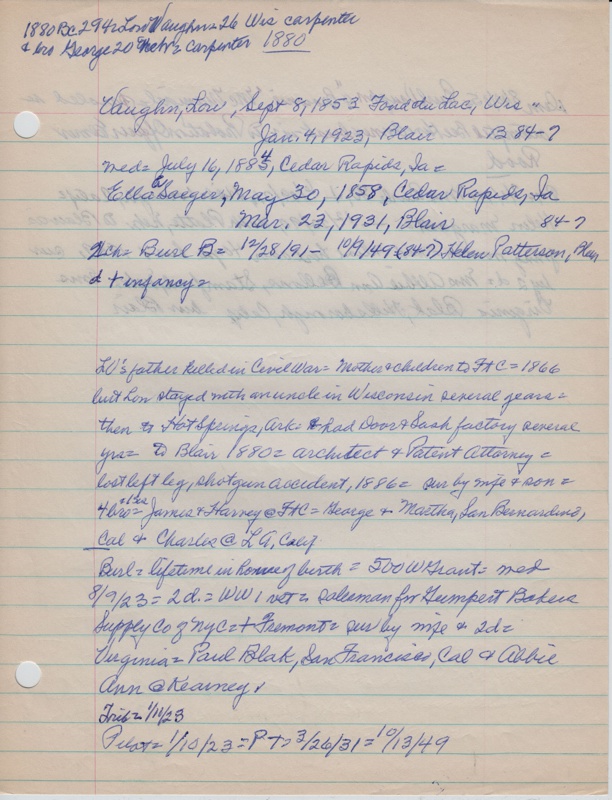 1880 Bc 294 = Lou Vaughn = 26 Wis carpenter
& bro George 20 = carpenter 1880
Vaughn, Lou, Sept 8, 1853 Fond du Lac, Wis -
Jan. 4, 1923, Blair B 84-7
med = July 16, 1884, Cedar Rapids, Ia =
Ella Saeger, May 30, 1858, Cedar Rapids, Ia
Mar. 23, 1931, Blair 84-7
ch = Burl B = 12/28/91 - 10/9/49 (84-7) Helen Patterson, Blair
d + infancy =
LV's father killed in Civil War = Mother & children to FtC = 1866
but Lou stayed with an uncle in Wisconsin several years =
then to Hot Springs, Ark = & had Door & Sash factory several
yrs = to Blair 1880 = architect & Patent Attorney =
lost left leg, shotgun accident, 1886 = sur by wife & son =
4 bro = James & Harvey @ FtC = George & Martha, San Bernardino,
Cal & Charles @ LA, Calif
Burl = lifetime in home of birth = 500 W Grant = med
8/9/23 = 2d. = WW 1 vet = salesman for Gumpert Bakers
Supply Co of NYC = + Fremont = sur by wife & 2d =
Virginia = Paul Blak, San Francisco, Cal & Abbie
Ann @ Kearney
Trib = 1/11/23
Pilot = 1/10/23 = P + = 3/26/31 = 10/13/49